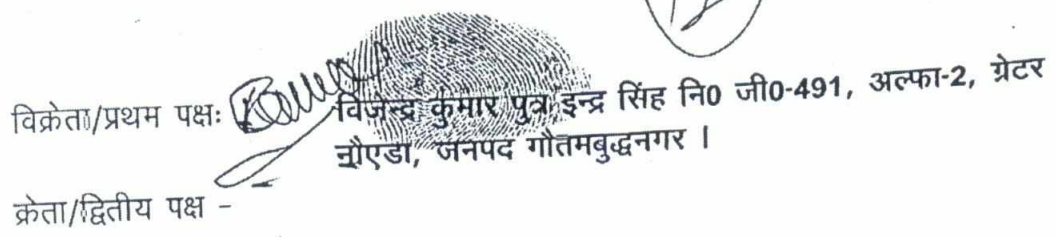 विक्रेता/प्रथम पक्षः विजेन्द्र कुमार पुत्र इन्द्र सिंह नि0 जी0-491, अल्फा-2, ग्रेटर
नौएडा, जनपद गौतमबुद्धनगर ।
क्रेता/द्वितीय पक्ष -